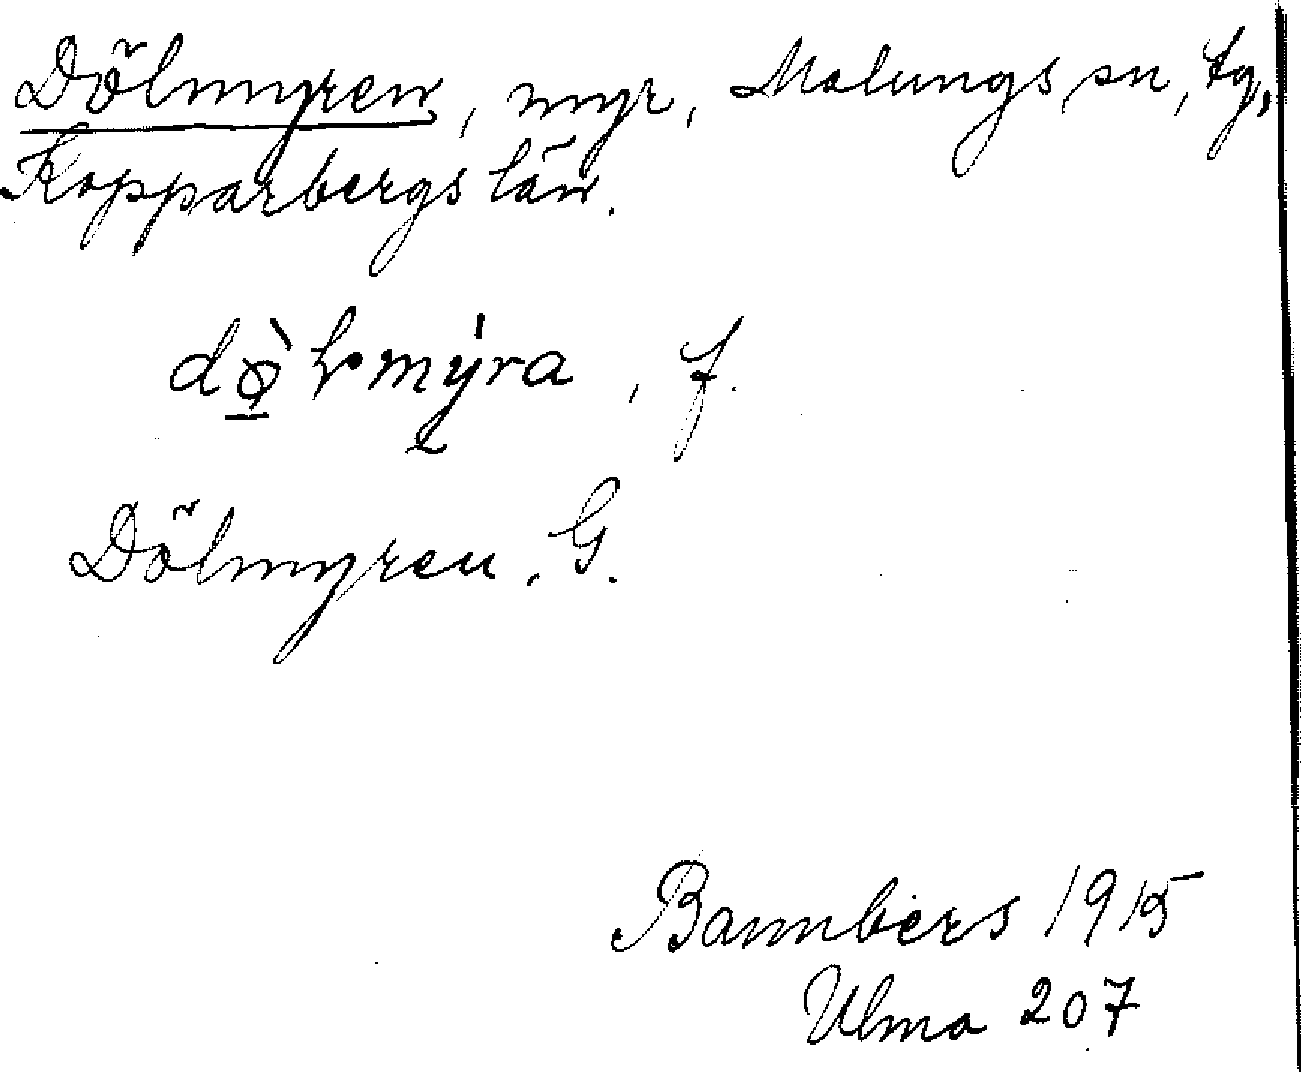 Dölmyren, myr, Malungs sn, tg,
Kopparbergs län.
dø̱̀ɫmýra, f.
Dölmyren. G.
Bannbers 1915
Ulma 207